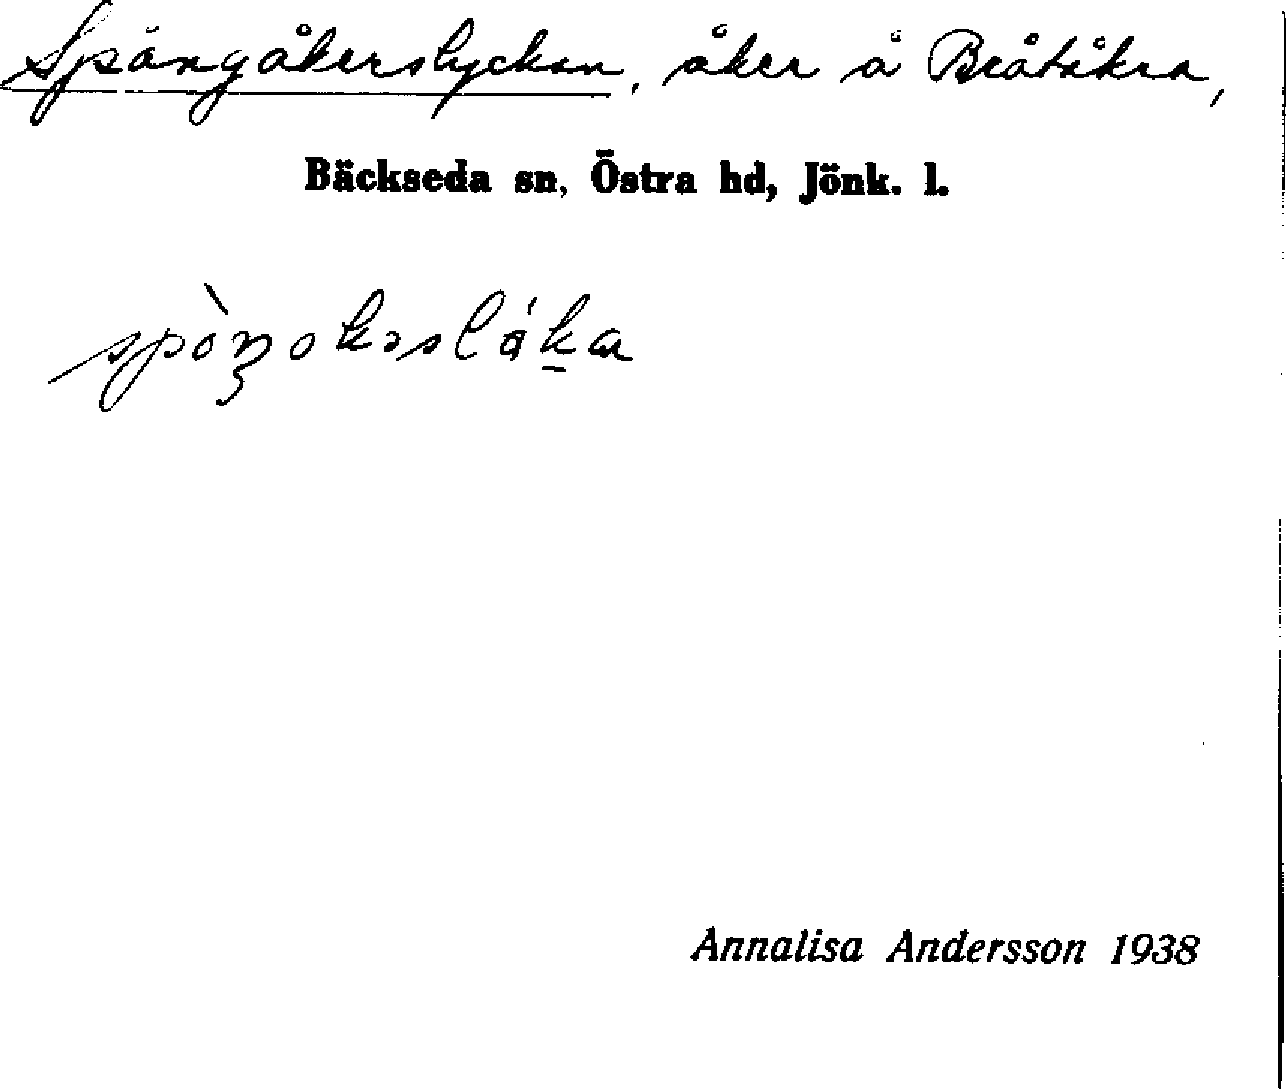 Spångåkerslyckan, åker å Bråtåkra,
Bäckseda sn, Östra hd, Jönk. l.
Annalisa Andersson 1938